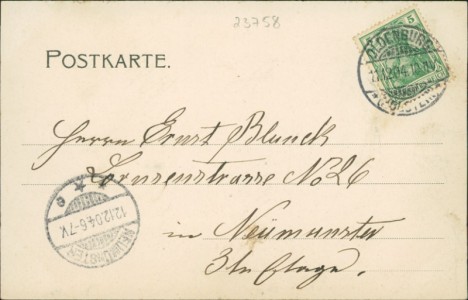 23758
POSTKARTE.
5
OLDENBURG
11.12.04
Herrn Ernst Blunck
Lornsenstrasse No 26
in Neumünster
3te Etage.
NEUMÜNSTER
12.12.04.6-7V.